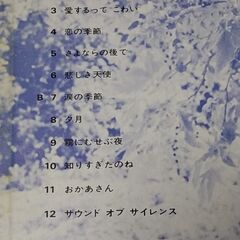 3 愛するって こわい
4 恋の季節
5 さよならの後で
6 悲しき天使
B 7 涙の季節
8 夕月
9 霧にむせぶ夜
10 知りすぎたのね
11 おかあさん
12 サウンド オブ サイレンス